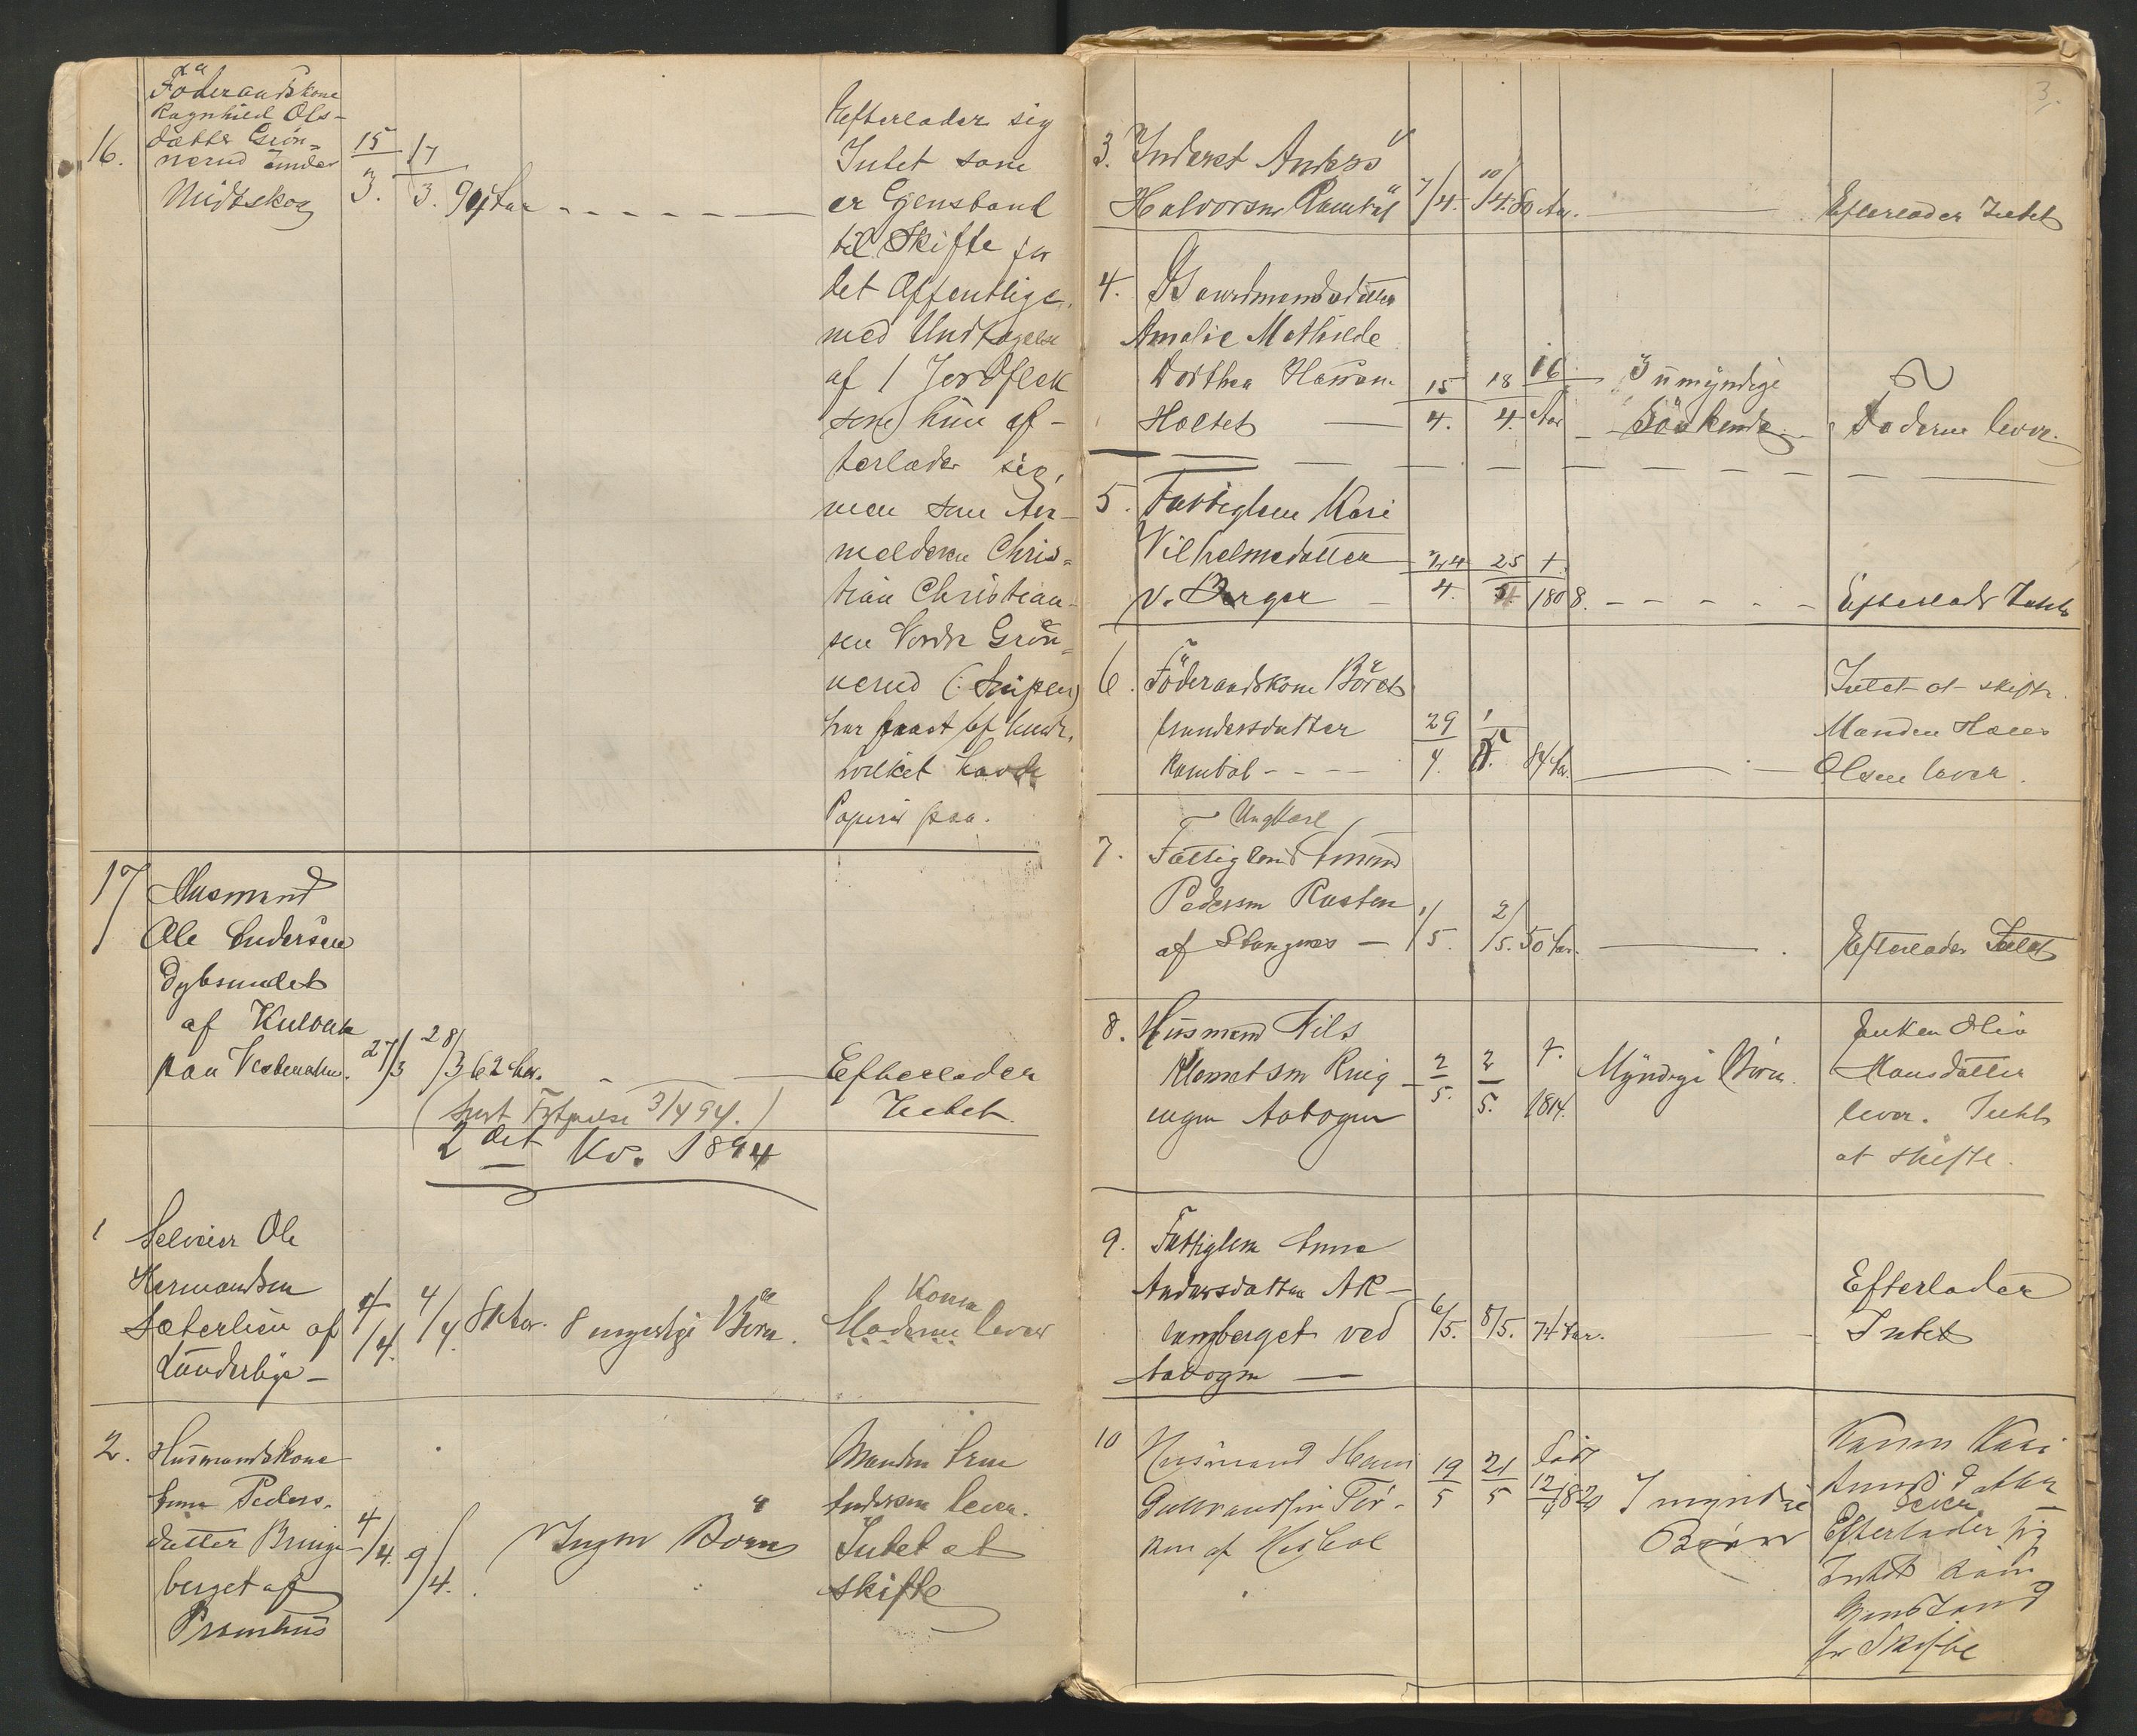 16.
Föderaadskone
Ragnhild Ols-
datter Grön-
nerud under
Midtskog
15/3. 17/3. 90 Aar
Efterlader sig
Intet som
er Gjenstand
til Skifte for
det Offentlige,
med Undtagelse
af 1 Jordflek
som hun ef-
terlader sig,
men som An-
melderen Chris-
tian Christian-
sen Nordre Grön-
nerud
har faaet af hende,
hvilket havde
Papirer paa.
17 Husmand
Ole Andersen
Dybsundet
af Kulblik
paa Vestenden. 27/3 28/3 62 Aar.
Efterlader
Intet.
3/4 94.)
2det Kv. 1894
1 Selveier Ole
Hermandsen
Sæterlien af
Sönderbye
4/4. 4/4. 81 Aar. 8 myndige Börn.
Konen
Moderen lever
2. Husmandskone
Anna Peders-
datter Bringe-
berget af
Pramhus
4/4. 9/4.
Ingen Börn
Manden Arne
Andersen lever.
Intet at
skifte
3.
3. Inderst Anders
Halvorsen Ramböl 7/4. 10/4. 80 Aar. Efterlader Intet
4. Gaardmandsdatter
Amalie Mathilde
Dorthea Hansen
Holtet
15/4. 18/4. 16 Aar
3 umyndige
Söskende
Faderen lever.
5. Fattiglem Kari
Vilhelmsdatter
v. Berger
24/4. 25/4 f. 1808.
Efterlader Intet
6. Föderaadskone Böret
Amundsdatter
Ramböl
29/4. 1/5. 84 Aar.
Intet at skifte.
Manden Hans
Olsen lever.
Ungkarl
7. Fattiglem Amund
Pedersen Rasten
af Stangnes
1/5. 2/5. 50 Aar.
Efterlader Intet
8. Husmand Nils
Klemetsen Ring-
engen Aabogen
2/5. 2/5. f. 1814.
Myndige Börn.
Enken Olia
Hansdatter
lever. Intet
at skifte.
9. Fattiglem Anne
Andersdatter Ak-
ved
Aabogen
6/5. 8/5. 74 Aar.
Efterlader
Intet
10 Husmand Hans
Gulbrandsen Tör-
af
19/5 21/5 född 12/4 1820
7 myndige
Börn
Konen Kari
lever
Efterlader sig
Intet som
Gjenstand
for Skifte